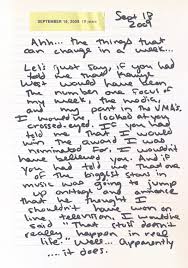 SEPTEMBER 18, 2009
Sept 18
2009
Ahh... the things that
can change in a week...
Let's just say, if you had
told me that Kanye
West would have been
the number one focus of
my week, the media,
and my part in the VMAs,
I would've looked at you
crossed-eyed. If you had
told me that I would
win the award I was
nominated for, I wouldn't
have believed you. And if
you had told me that one
of the biggest stars in
music was going to jump
up onstage and announce
that he thought I
shouldn't have won on
live television, I would've
said "That stuff doesn't
really happen in real
life." Well... apparently
.... it does.